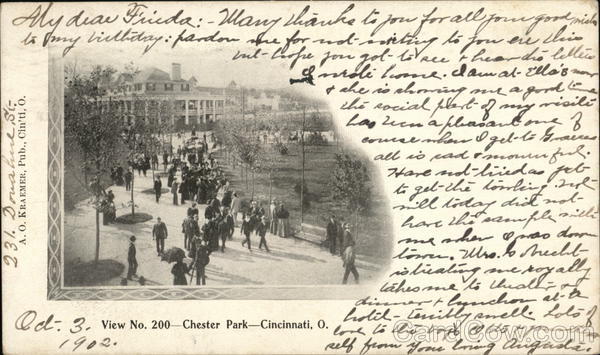 My dear Frieda: - Many thanks to you for all your good wishes
to my birthday: pardon me for not writing to you ere this
but hope you got to see + hear the letters
I wrote home. I am at Ella's now
+ she is showing me a good time
the social part of my visit
has been a pleasant one of
course when I get to
all is sad + mournful.
Have not tried as yet
to get the towling, not
will today did not
have the sample with
me when I was down
town. Mrs.
is treating me royally
takes me to theater + 
dinner + luncheon at the
hotel - terribly swell. Lots of
love to
self from your loving Augusta.
231. St.
A. O. KRAEMER, Pub., Cin'ti, O.
View No. 200—Chester Park—Cincinnati, O.
Oct. 3.
1902.
CardCow.com